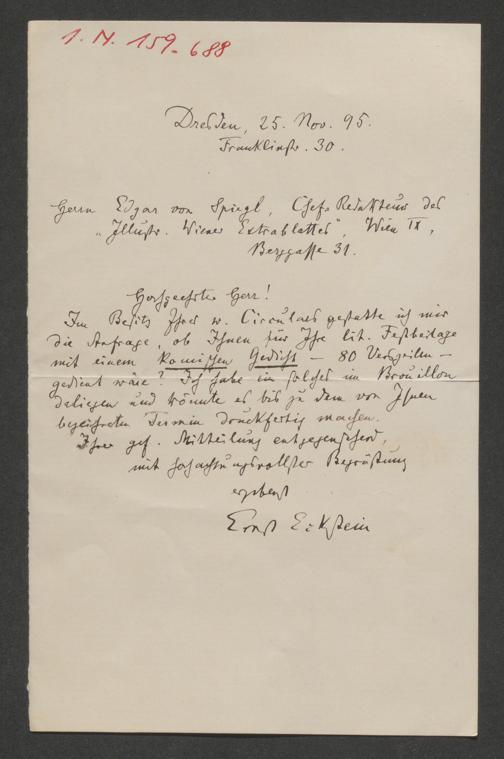 I. N. 159.688
Dresden, 25. Nov. 95.
Franklinstr. 30.
Herrn Edgar von Spiegl, Chef-Redakteur des
„Illustr. Wiener Extrablattes", Wien IX,
Berggasse 31.
Hochgeehrter Herr!
Im Besitz Ihres w. Circulars gestatte ich mir
die Anfrage, ob Ihnen für Ihre lit. Festbeilage
mit einem komischen Gedicht – 80 Verszeilen –
gedient wäre? Ich habe ein solches im Brouillon
daliegen und könnte es bis zu dem von Ihnen
bezeichneten Termin druckfertig machen.
Ihrer gef. Mitteilung entgegensehend,
mit hochachtungsvollster Begrüßung
ergebenst
Ernst Eckstein